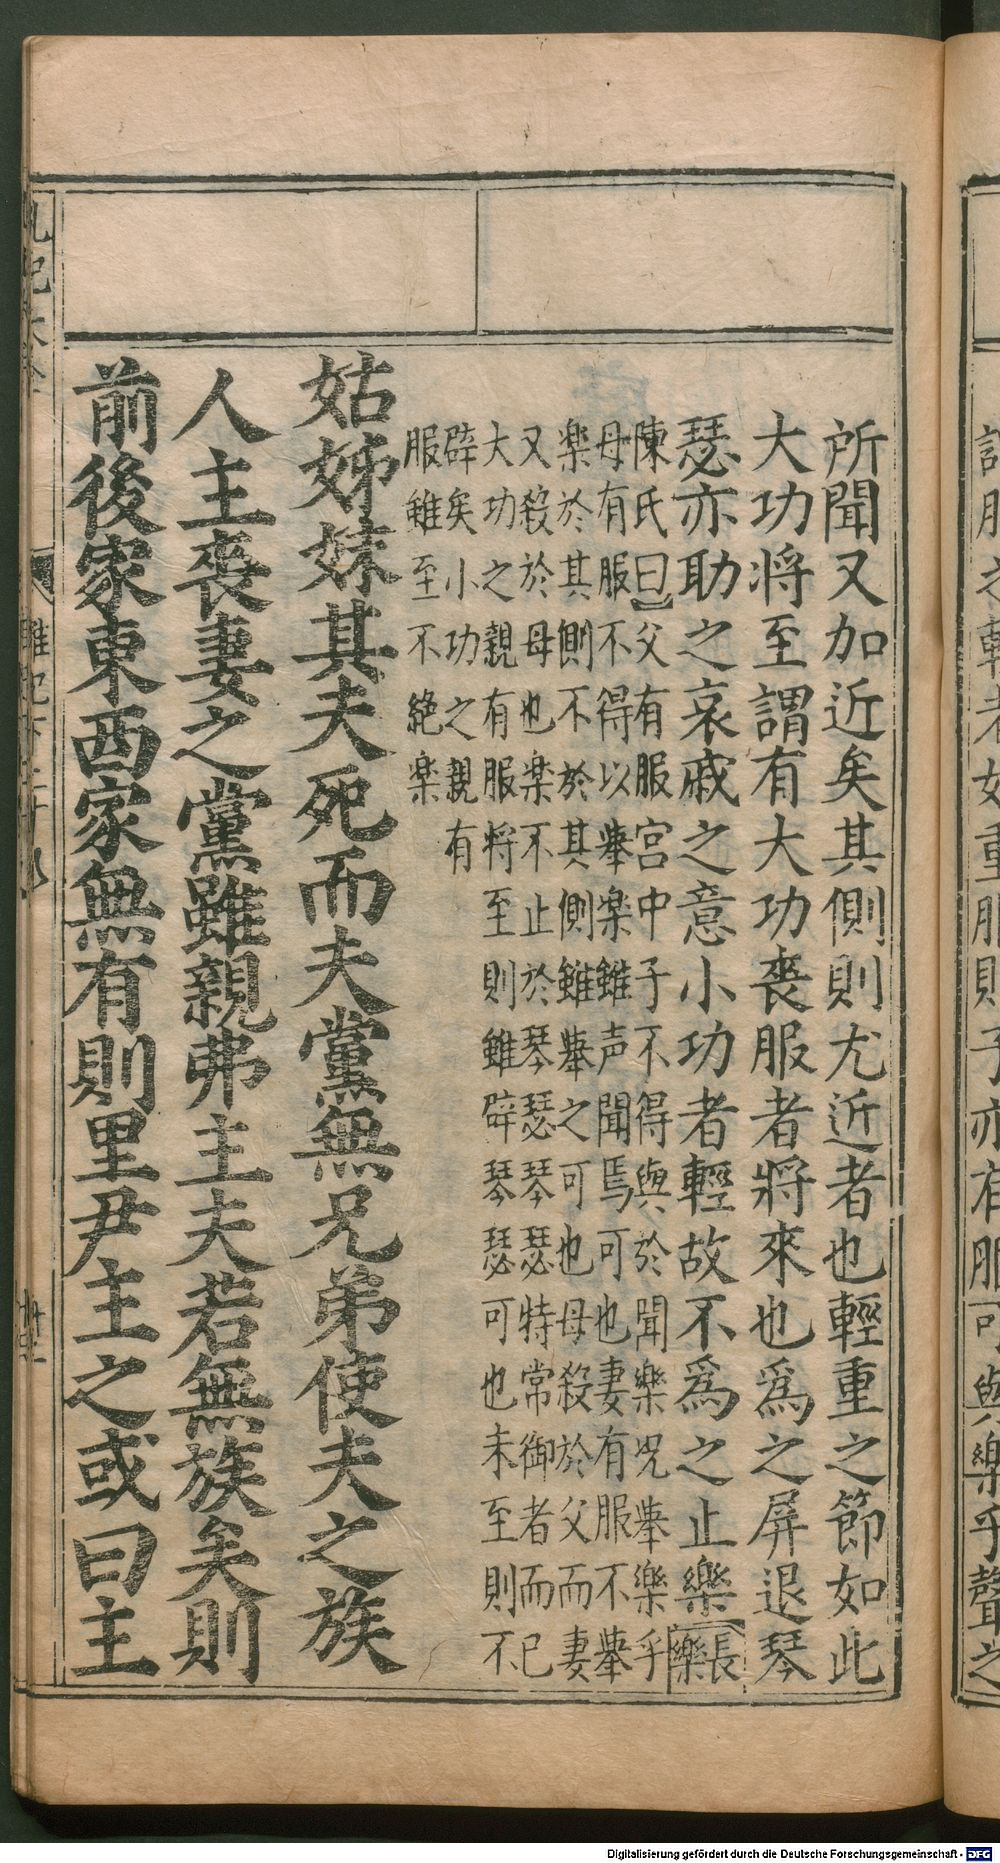 所聞又加近矣其側則尤近者也輕重之節如此
大功將至謂有大功喪服者將來也爲之屏退琴
瑟亦助之哀戚之意小功者輕故不爲之止樂
長樂
陳氏曰父有服宮中子不得與於聞樂况舉樂乎
母有服不得以舉楽雖声聞焉可也妻有服不舉
楽於其側不於其側雖舉之可也母殺於父而妻
又殺於母也楽不止於琴瑟琴瑟特常御者而已
大功之親有服将至則雖辟琴瑟可也未至則不
辟矣小功之親有
服雖至不絶楽
姑姊妹其夫死而夫黨無兄弟使夫之族
人主喪妻之黨雖親弗主夫若無族矣則
前後家東西家無有則里尹主之或曰主
Digitalisierung gefördert durch die Deutsche Forschungsgemeinschaft - DFG